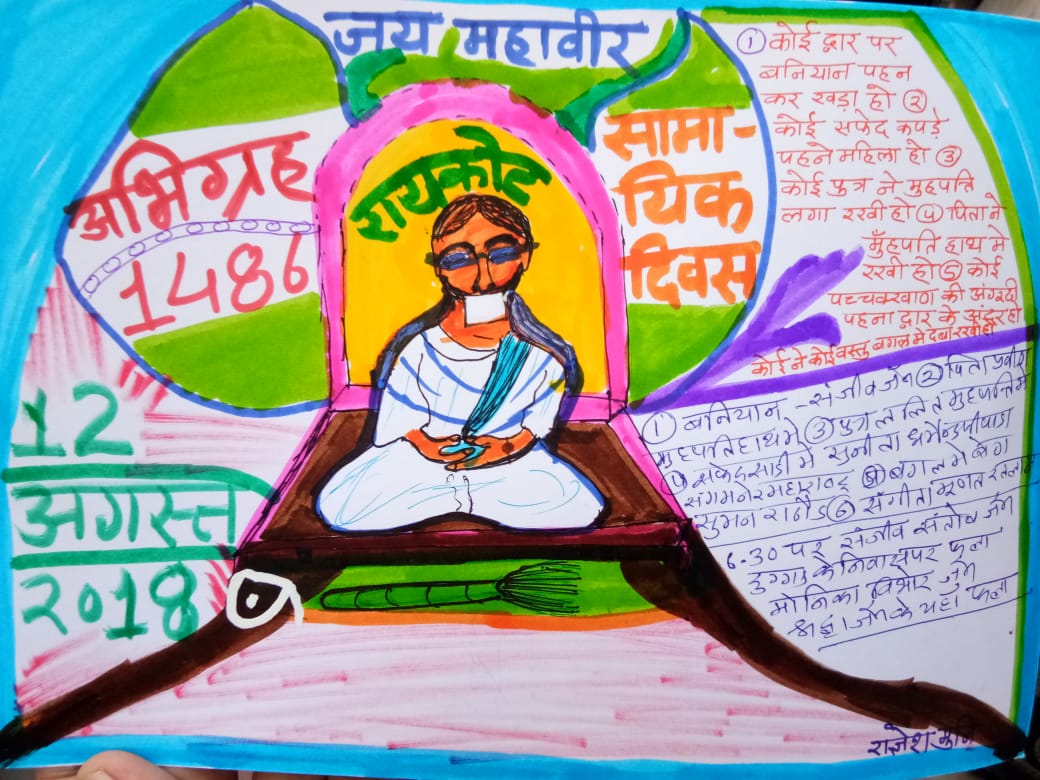 जय महावीर
अभिग्रह
1486
रायकोट
सामा-
यिक
दिवस
12
अगस्त
2018
① कोई द्वार पर
बनियान पहन
कर खड़ा हो ②
कोई सफेद कपड़े
पहने महिला हो ③
कोई पुत्र ने मुहपति
लगा रखी हो ④ पिता ने
मुँहपति हाथ मे
रखी हो ⑤ कोई
पच्चक्खाण की अंगूठी
पहना द्वार के अंदर हो
कोई ने कोई वस्तु बगल मे दबा रखी हो
① बनियान - संजीव जैन ② पिता प्रवीण
मुहपति हाथ मे ③ पुत्र ललित मुहपति मे
④ सफेद साड़ी मे सुनीता धर्मेन्द्र पीपाड़ा
संगमनेर महाराष्ट्र ⑤ बगल मे बेग
सुमन राठौड़ ⑥ संगीता मूणत रतलाम
6.30 पर संजीव संतोष जैन
दुग्गड़ के निवास पर फला
मोनिका विभोर जैन
जैन के यहां फला
राजेश मुनि